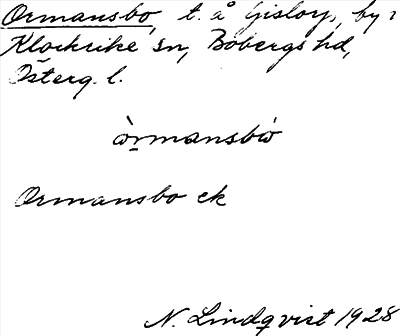 Ormansbo, t. å Gisloy, by i
Klockrike sn, Bobergs hd,
Österg. l.
òrmansbò
Ormansbo ek
N. Lindqvist 1928